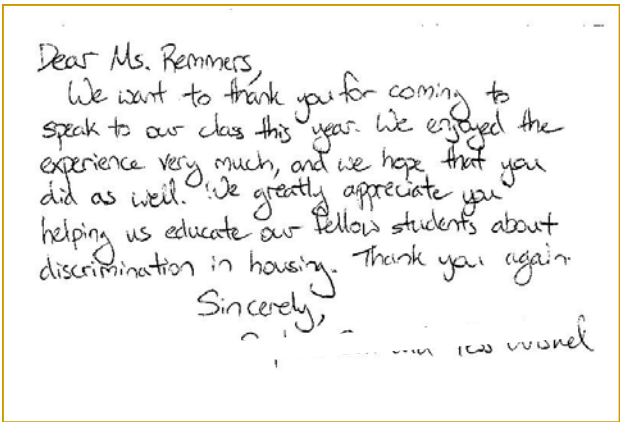 Dear Ms. Remmers,
We want to thank you for coming to
speak to our class this year. We enjoyed the
experience very much, and we hope that you
did as well. We greatly appreciate you
helping us educate our fellow students about
discrimination in housing. Thank you again.
Sincerely,